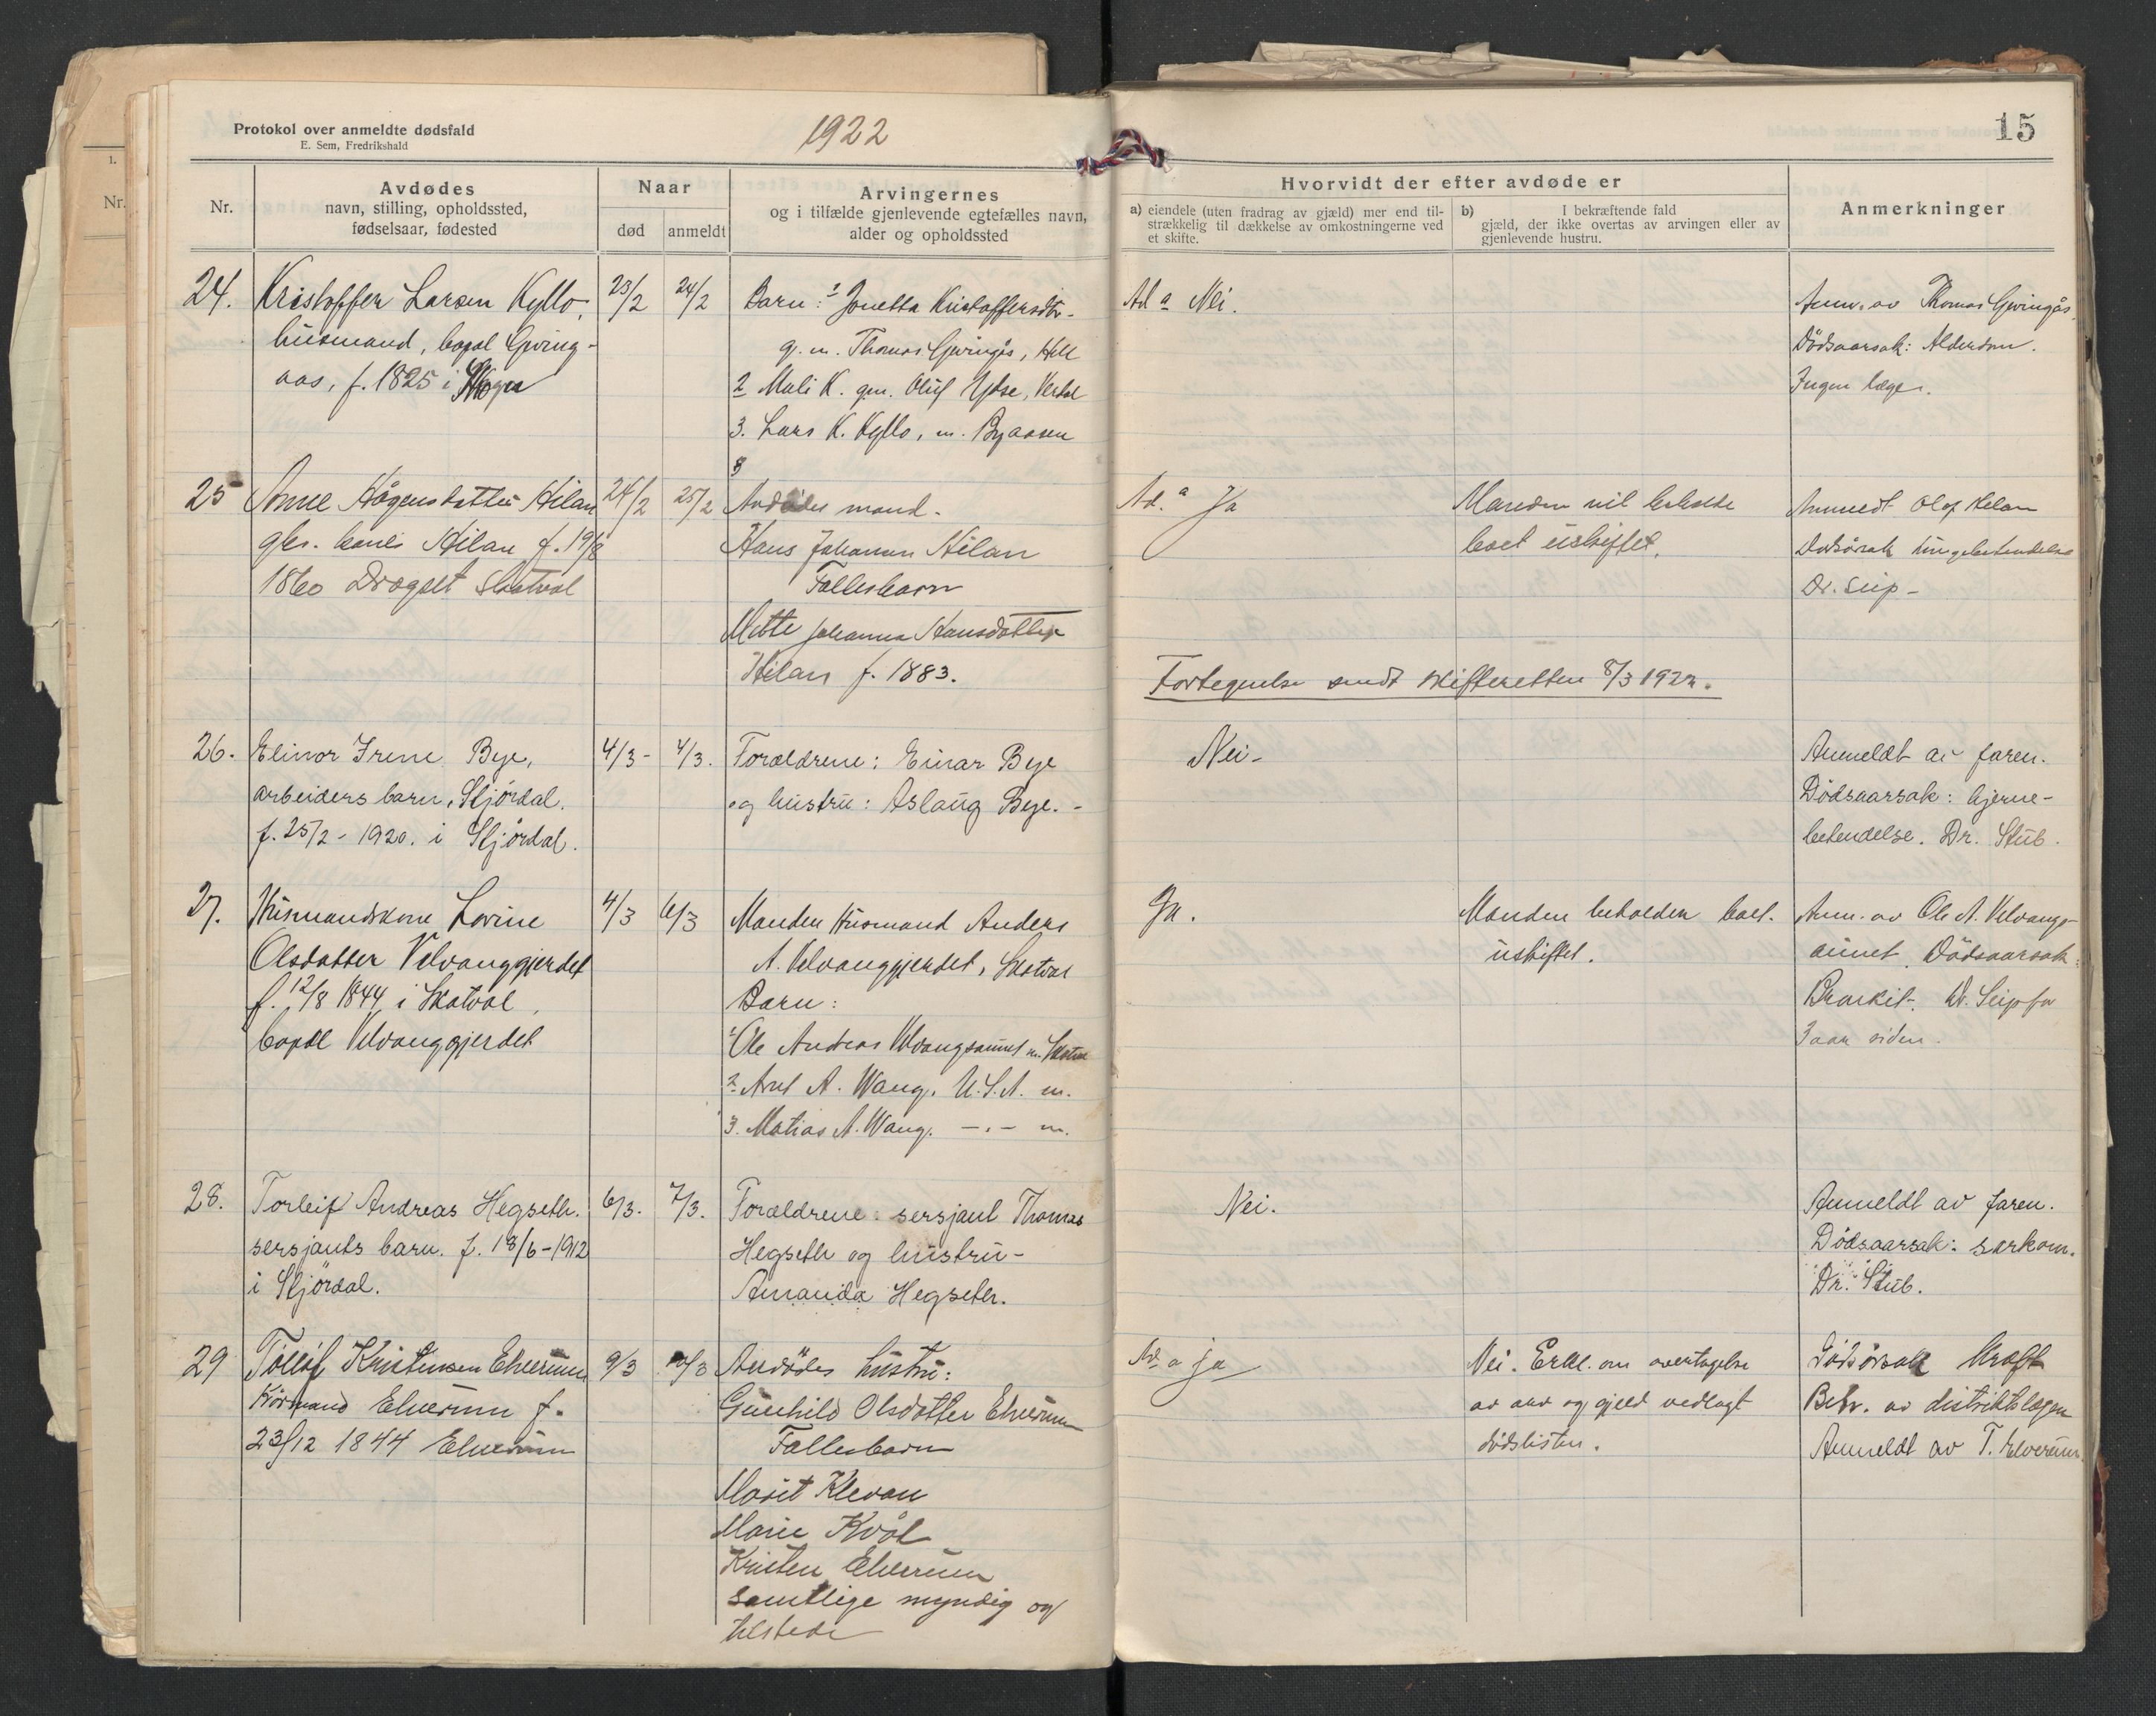 Protokol over anmeldte dødsfald
E. Sem, Fredrikshald
1922
15
Nr.
Avdødes
navn, stilling, opholdssted,
fødselsaar, fødested
Naar
død
anmeldt
Arvingernes
og i tilfælde gjenlevende egtefælles navn,
alder og opholdssted
Hvorvidt der efter avdøde er
a) eiendele (uten fradrag av gjæld) mer end til-
strækkelig til dækkelse av omkostningerne ved
et skifte.
b) I bekræftende fald
gjæld, der ikke overtas av arvingen eller av
gjenlevende hustru.
Anmerkninger
1.
Nr.
24.
Kristoffer Larsen Kyllo,
husmand, bopæl Gjeving-
aas, f. 1825 i Skogn
23/2
24/2
Barn: 1 Jonetta Kristoffersdtr.
g. m. Thomas Gjevingås, Hell
2 Mali K. gm. Oluf Ydse, Verdal
3. Lars K. Kyllo, m. Byaasen
Ad a Nei.
Anm. av Thomas Gjevingås.
Dödsaarsak: Alderdom.
Ingen læge.
25
Anne Hågensdatter Hilan
gbr. kone Hilan f. 19/8
1860 Drogset Skatval
24/2
25/2
Avdødes mand.
Hans Johansen Hilan
Fallesbarn
Mette Johanna Hansdatter
Hilan f. 1883.
Ad. a Ja
Manden vil beholde
boet uskiftet.
Anmeldt Olaf Hilan
Dødsårsak lungebetendelse
Dr. Seip -
Fortegnelse sendt skifteretten 8/3 1922.
26.
Elinor Irene Bye,
arbeiders barn, Stjördal.
f. 25/2 - 1920. i Stjördal.
4/3 -
4/3.
Forældrene: Einar Bye
og hustru: Aslaug Bye. -
Nei -
Anmeldt av faren.
Dödsaarsak: hjerne-
betendelse. Dr. Stub.
27.
Husmandskone Lovine
Olsdatter Velvanggjerdet
f. 12/8 1844 i Skatval,
bopæl Velvanggjerdet
4/3
6/3
Manden Husmand Anders
A. Velvanggjerdet, Skatval
Barn:
1 Ole Andreas Velvangsaunet m. Skatval
2. A. Wang, U.S.A. m.
3. Matias A. Wang. -.- m.
Ja.
Manden beholder boet.
uskiftet.
Anm. av Ole A. Velvangs-
aunet. Dödsaarsak:
Bronkit. Dr. Seip for
3 aar siden.
28.
Torleif Andreas Hegseth.
sersjants barn. f. 18/6 - 1912
i Stjördal.
6/3.
7/3.
Forældrene: sersjant Thomas
Hegseth og hustru -
Amanda Hegseth.
Nei.
Anmeldt av faren.
Dödsaarsak: sarkom.
Dr. Stub.
29
Tollof Kristensen Elverum
Kårmand Elverum f.
23/12 1844 Elverum
9/3
10/3
Avdödes hustru:
Gunhild Olsdatter Elverum
Fallesbarn
Marit Klevan
Marie Kvål
Kristen Elverum
samtlige myndig og
tilstede
Ad a ja
Nei. Erkl. om overtagelse
av arv og gjeld vedlagt
dödslisten.
Dödsårsak Kræft
Beh. av distriktslægen
Anmeldt av T. Elverum.